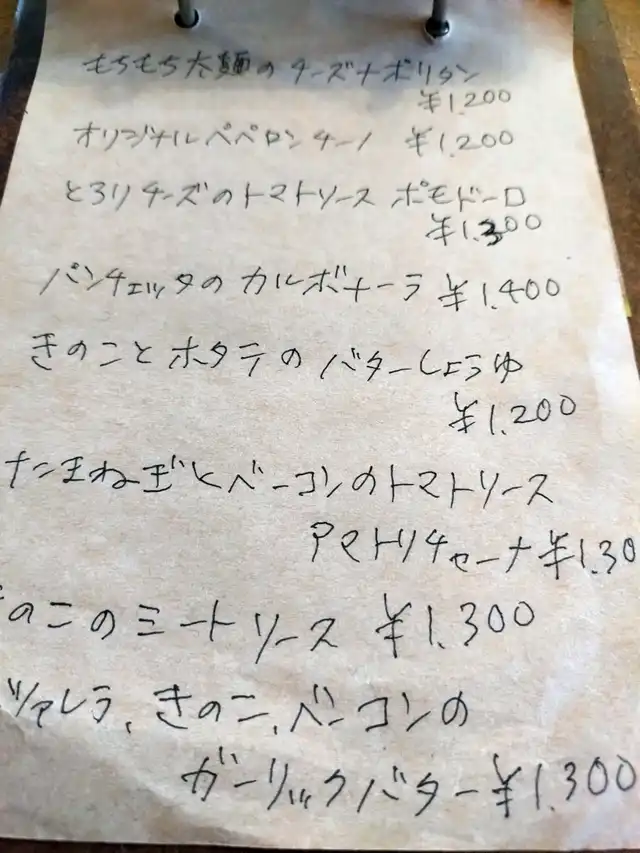 もちもち太麺のチーズナポリタン
¥1.200
オリジナルペペロンチーノ ¥1.200
とろりチーズのトマトソース ポモドーロ
¥1.300
パンチェッタのカルボナーラ ¥1.400
きのことホタテのバターしょうゆ
¥1.200
たまねぎとベーコンのトマトソース
アマトリチャーナ ¥1.30
のこのミートソース ¥1.300
ツァレラ、きのこ、ベーコンの
ガーリックバター ¥1.300